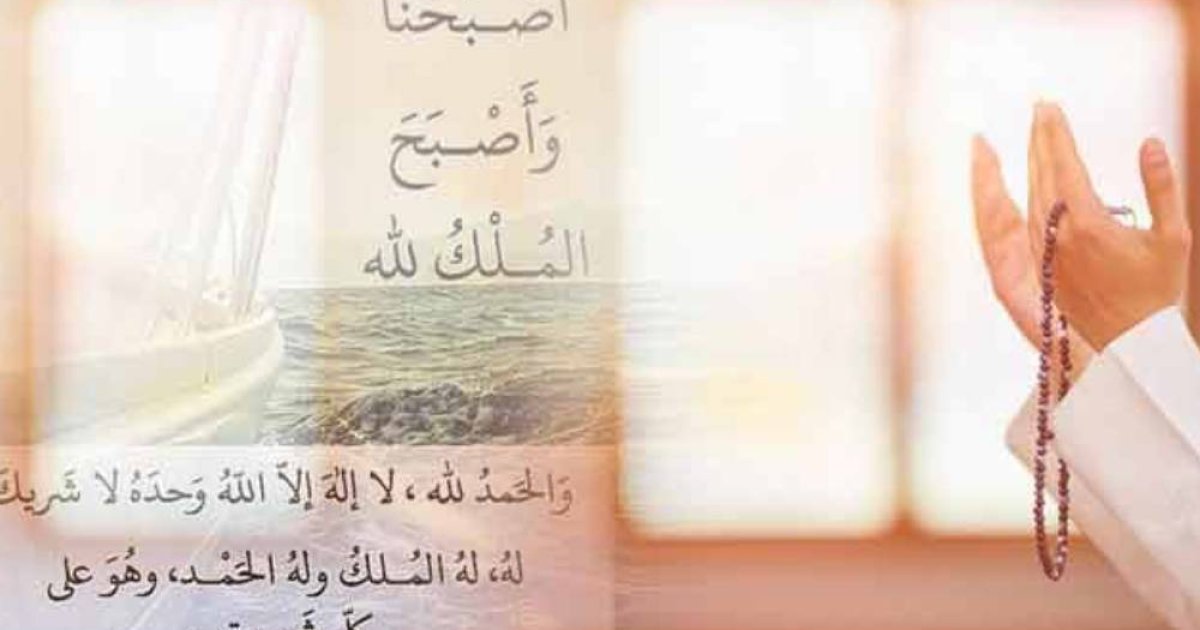 أصـبحنا
وَأَصْـبَحَ
المُـلْكُ لله
وَالحَمدُ لله ، لا إلهَ إلاّ اللّهُ وَحدَهُ لا شَريكَ
لهُ، لهُ المُـلكُ ولهُ الحَمْـد، وهُوَ على